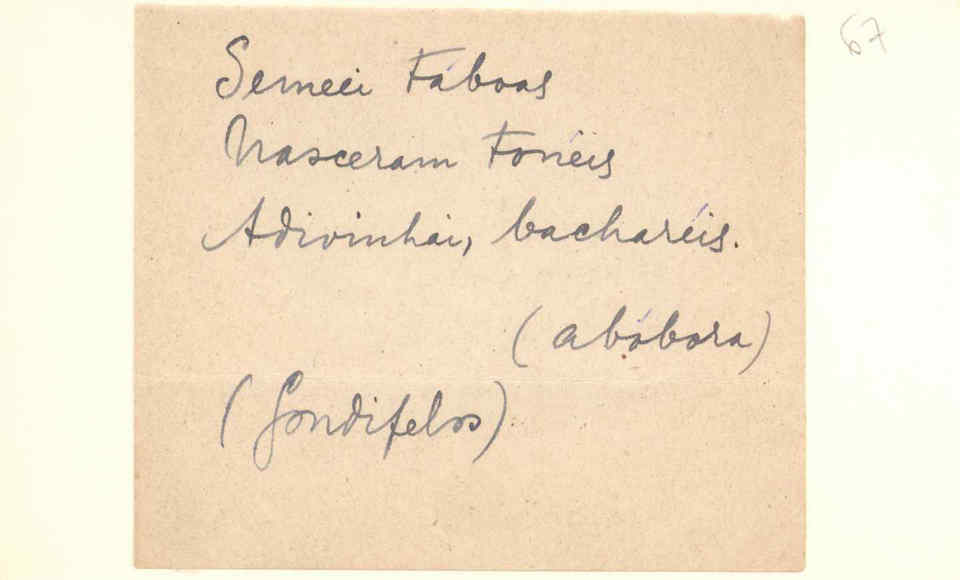 67
Semeei Táboas
Nasceram Tonéis
Adivinhai, bacharéis.
(abóbora)
(Gondifelos)